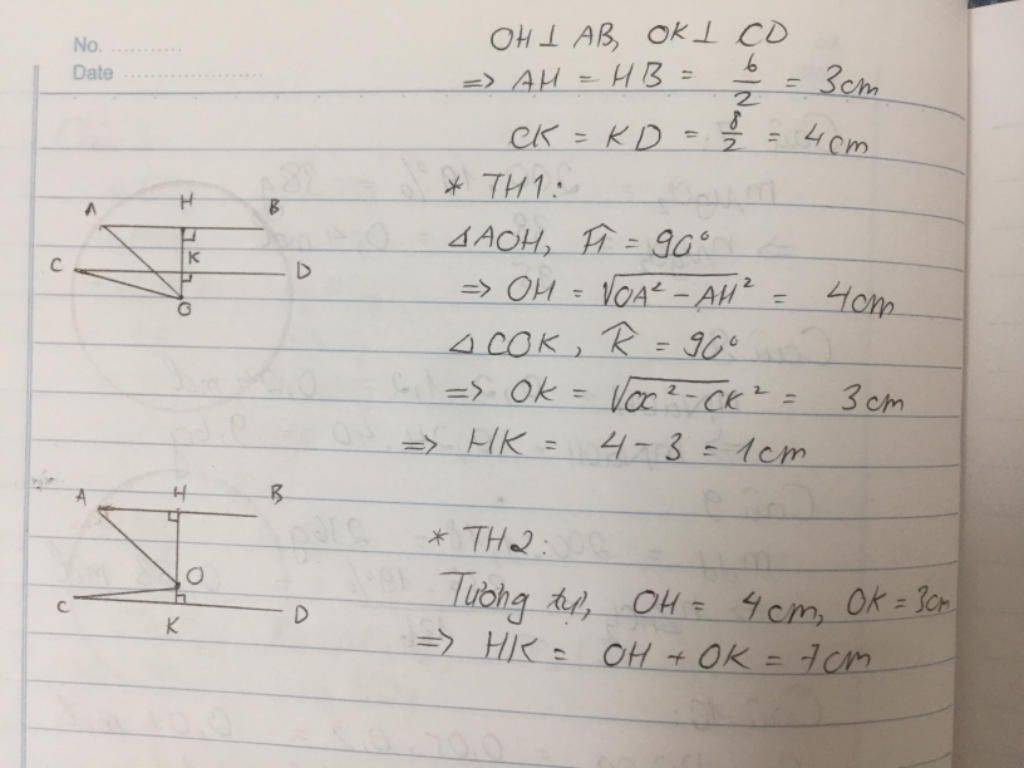 No. ..........
Date ....................
OH ⊥ AB, OK ⊥ CD
=> AH = HB = 6/2 = 3cm
CK = KD = 8/2 = 4cm
* TH1:
A H B
C K D
O
△AOH, Ĥ = 90°
=> OH = √OA² - AH² = 4cm
△COK, K̂ = 90°
=> OK = √OC² - CK² = 3cm
=> HK = 4 - 3 = 1cm
A H B
O
C K D
* TH2:
Tương tự, OH = 4cm, OK = 3cm
=> HK = OH + OK = 7cm